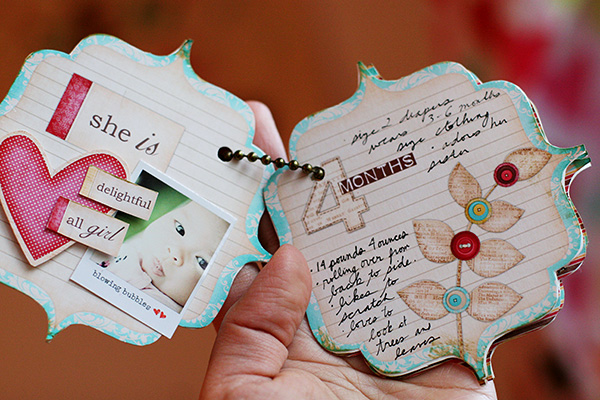 she is
delightful
all girl
blowing bubbles
• size 2 diapers
• wears 3-6 months
size clothing
• adores her
sister
4
MONTHS
• 14 pounds 4 ounces
• rolling over from
back to side
• likes to
scratch
• loves to
look at
trees and
leaves